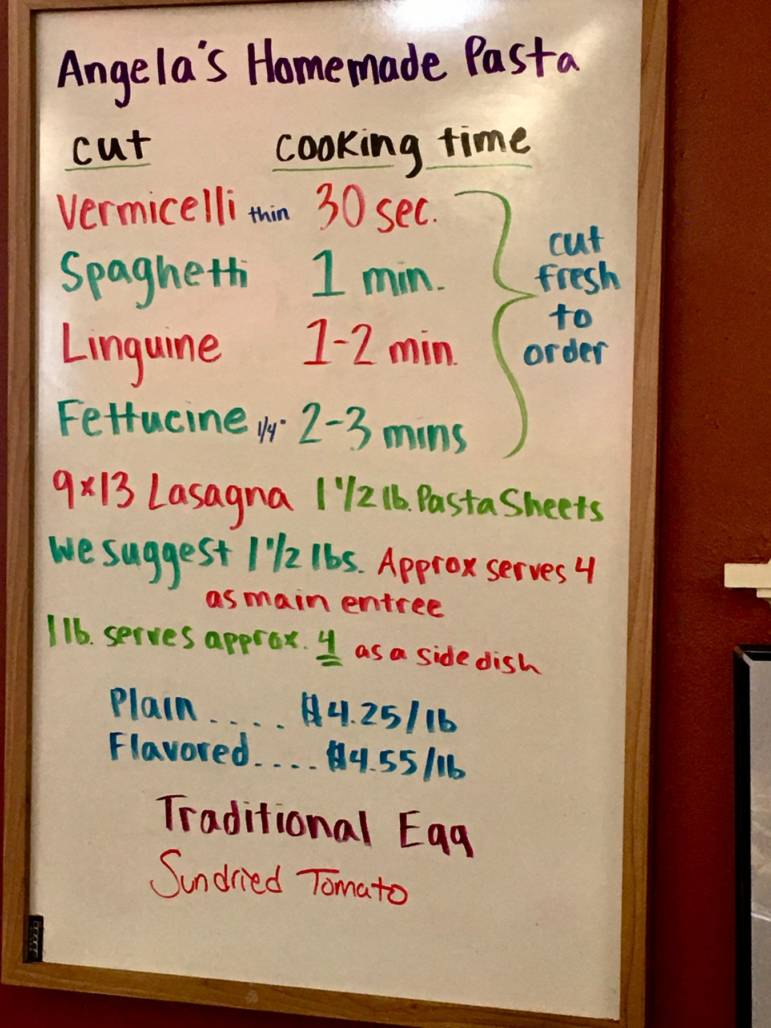 Angela's Homemade Pasta
cut cooking time
Vermicelli thin 30 sec.
Spaghetti 1 min.
Linguine 1-2 min.
Fettucine 1/4" 2-3 mins
cut
fresh
to
order
9x13 Lasagna 1 1/2 lb. Pasta Sheets
we suggest 1 1/2 lbs. Approx serves 4
as main entree
1 lb. serves approx. 4 as a side dish
Plain .... $4.25/lb
Flavored.... $4.55/lb
Traditional Egg
Sundried Tomato